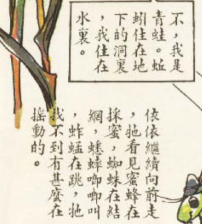 不，我是
青蛙。蚯
蚓住在地
下的洞裏
，我住在
水裏。
依依繼續向前走
，牠看見蜜蜂在
採蜜，蜘蛛在結
網，蟋蟀唧唧叫
，蚱蜢在跳，牠
找不到有甚麼在
搖動的。